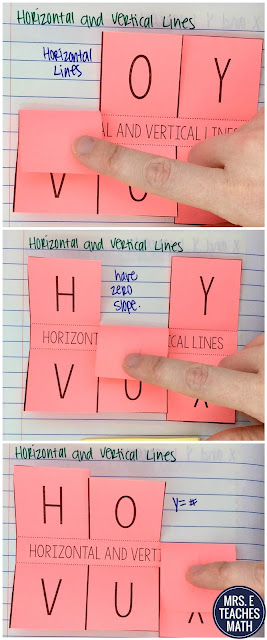 Horizontal and Vertical Lines
Horizontal
Lines
O Y
AL AND VERTICAL LINES
V U
Horizontal and Vertical Lines
H
have
zero
slope.
Y
HORIZONT
ICAL LINES
V U X
Horizontal and Vertical Lines
H O
y=#
HORIZONTAL AND VERTI
V U
MRS. E
TEACHES
MATH